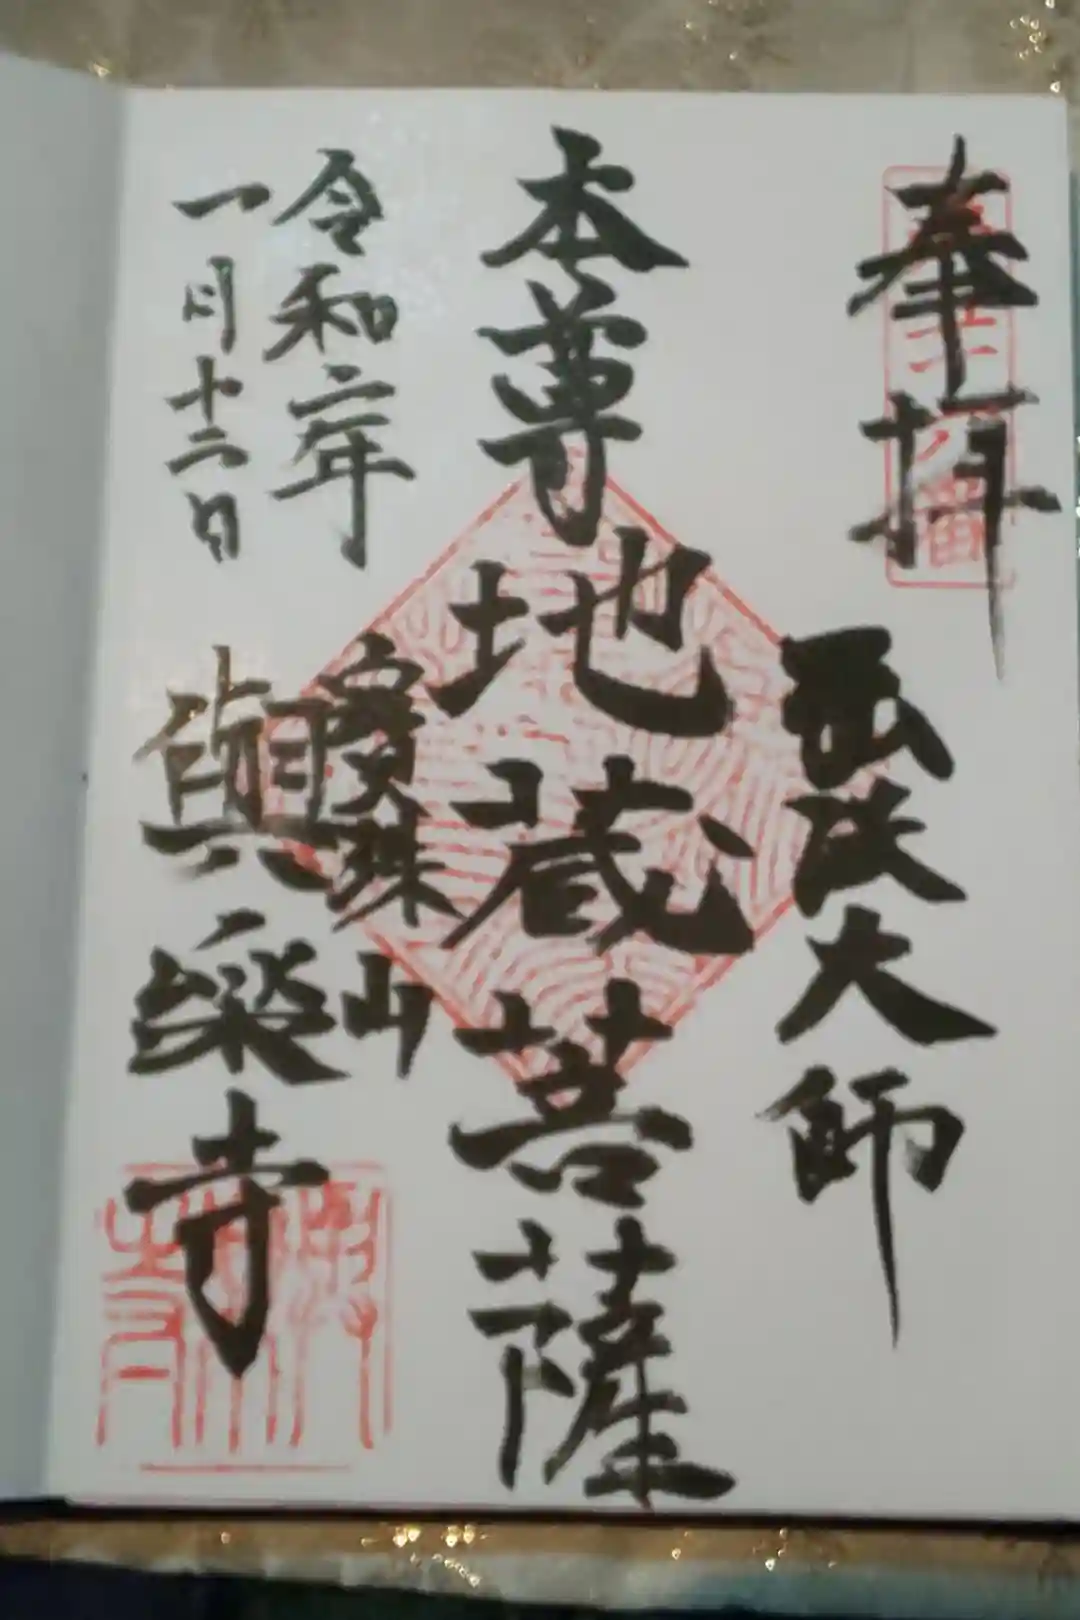 奉拝
弘法大師
本尊 地蔵菩薩
令和二年
一月十二日
寶珠山
眞樂寺